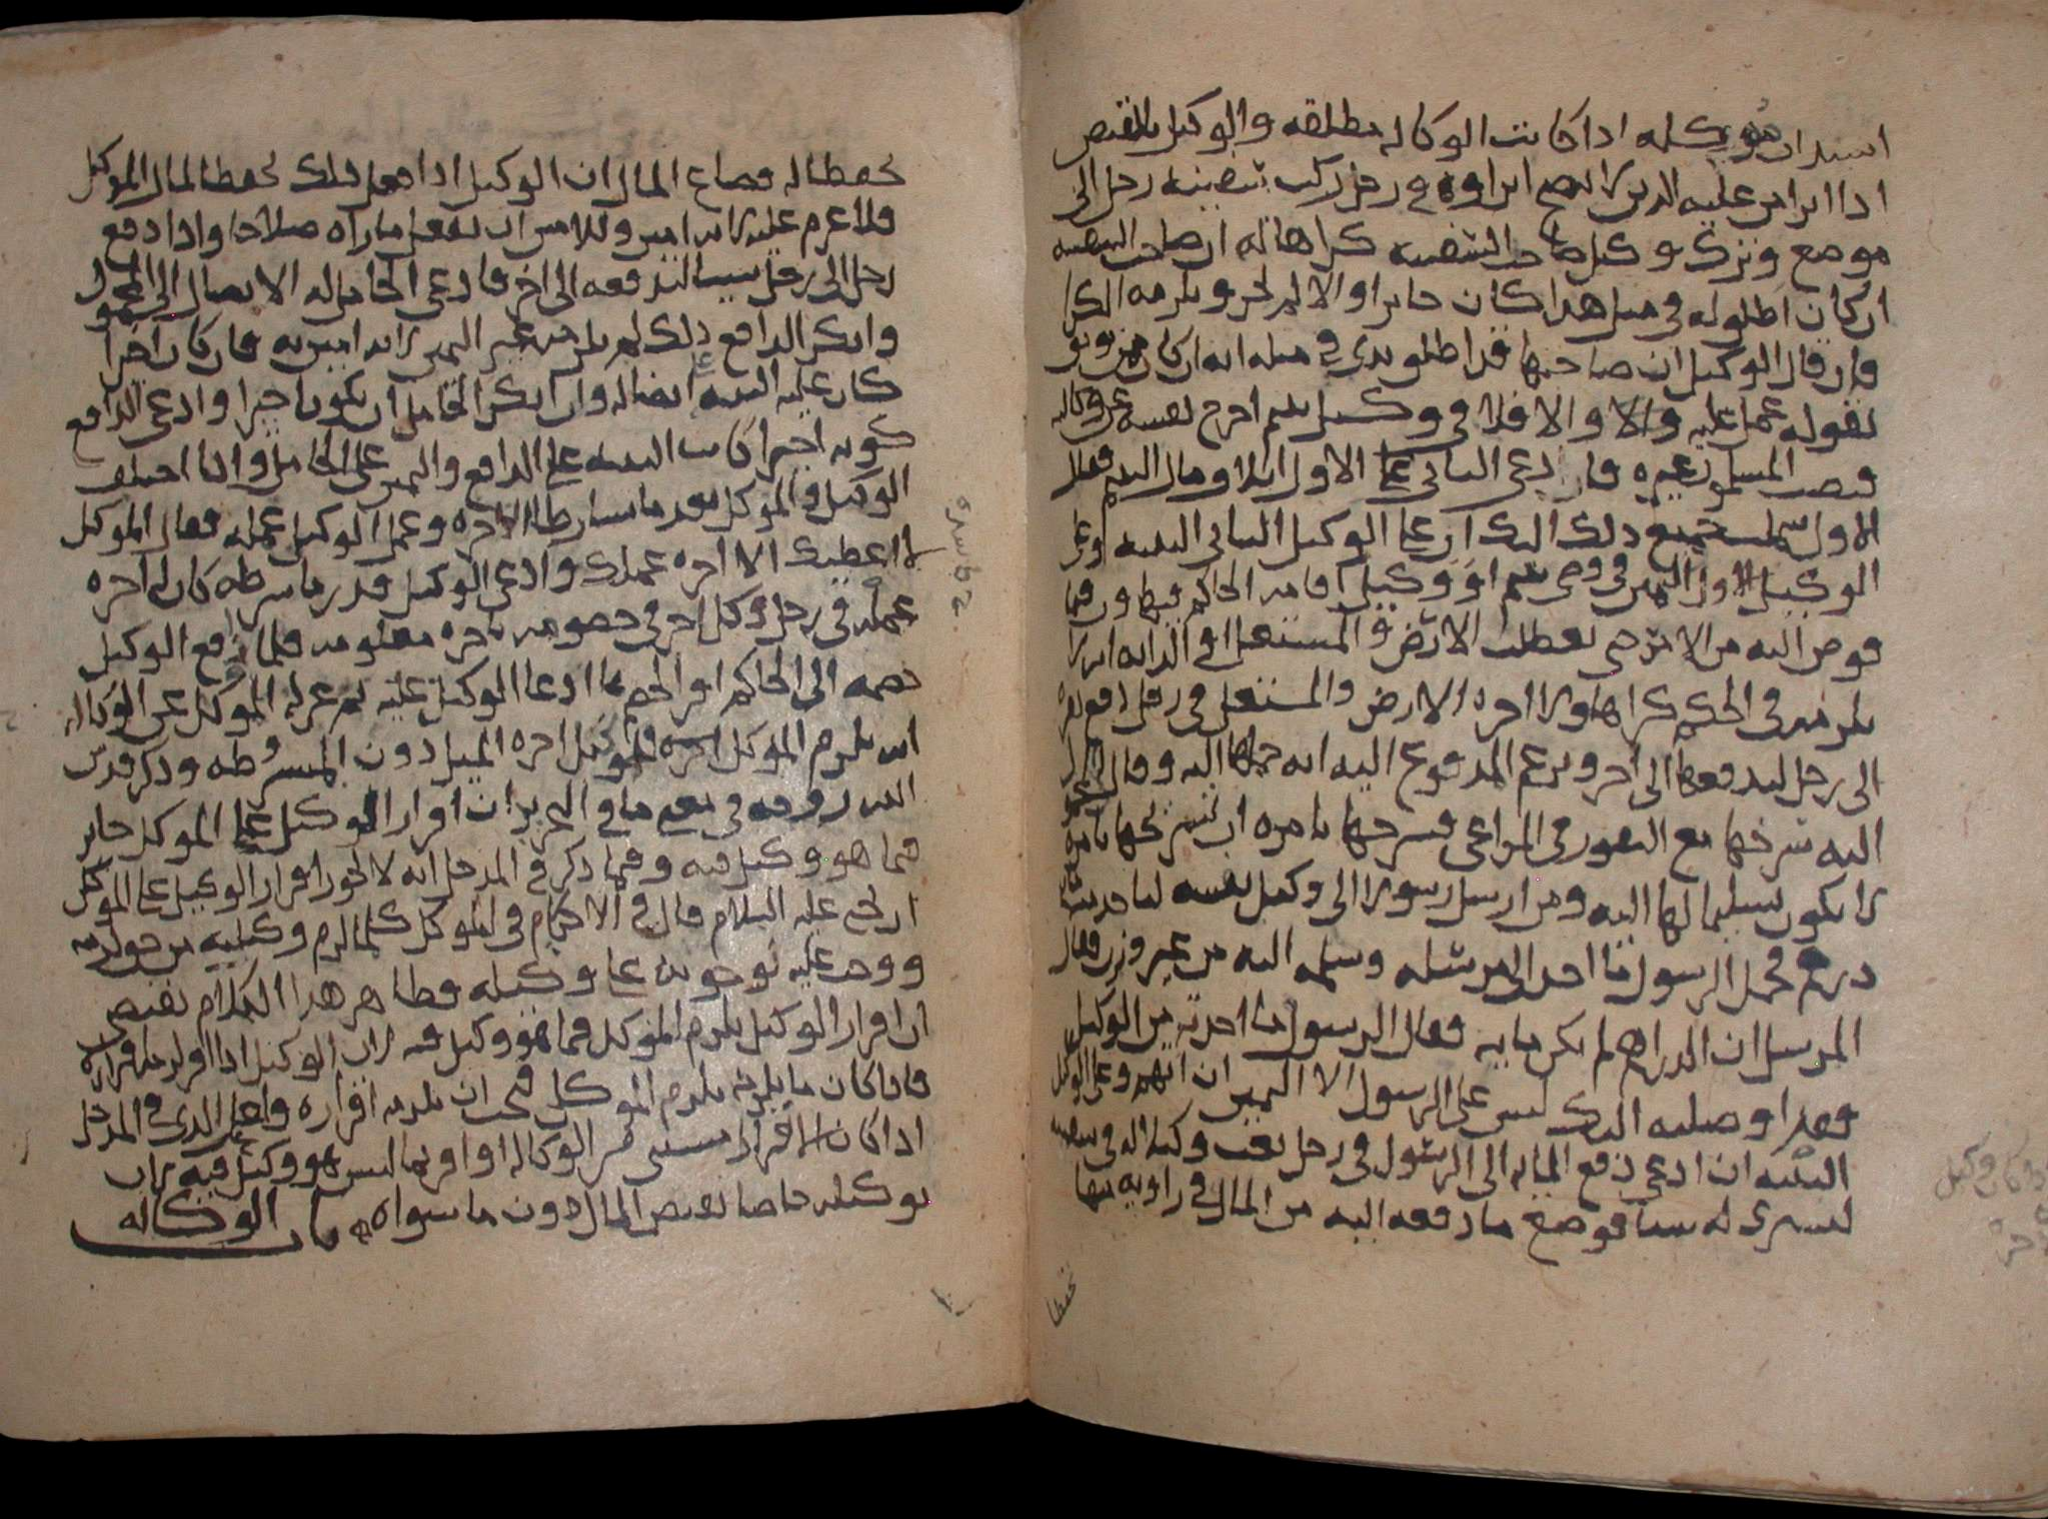 استدان موكله اذا كانت الوكاله مطلقه والوكيل بالقبض
اذا ابرا من عليه الدين لا يصح ابراوه في رجل ركب سفينه رجل الى
موضع وترك وكيل صاحب السفينه كراها له ان صاحب السفينه
ان كان اطلق له في مثل هذا كان جايزا والا لم يجز ويلزمه الكرا
فان قال الوكيل ان صاحبها قد اطلق يدي في مثله انه ان كان ممن يوثق
بقوله عمل عليه والا فلا في وكيل يتيم اخرج نفسه عن وكاله
فنصب المسلمون غيره فان ادعى الثاني على الاول مالا من مال اليتيم فقال
الاول سلمت جميع ذلك اليك ان على الوكيل الثاني البينه وعلى
الوكيل الاول اليمين في وصي يتيم او وكيل اقامه الحاكم فتهاون فيما
فوض اليه من الامر حتى تعطلت الارض والمستغل او الدابه انه لا
يلزمه في الحكم كراها ولا اجره الارض والمستغل في رجل دفع بقره
الى رجل ليدفعها الى اخر وزعم المدفوع اليه انه حملها اليه وقال المحمول
اليه سرحها مع البقور في المراعي فسرحها بامره ان تسريحها بامره
لا يكون تسليما لها اليه ومن ارسل رسولا الى وكيل نفسه لياخذ مايه
درهم فحمل الرسول ما اخذ الى مرسله وسلمه اليه من غير وزن فقال
المرسل ان الدراهم لم يكن مايه فقال الرسول ما اخذته من الوكيل
فقد اوصلته اليك ليس على الرسول الا اليمين ان اتهم وعلى الوكيل
البينه ان ادعى دفع المايه الى الرسول في رجل بعث وكيلا له في سفينه
ليشتري له شيا فوضع ما دفعه اليه من المال في زاويه منها
تحفظا
تحفظا له فضاع المال ان الوكيل اذا فعل ذلك تحفظا لمال الموكل
فلا غرم عليه لانه امين وللامين ان يفعل ما راه صلاحا واذا دفع
رجل الى رجل شيا ليدفعه الى اخر فادعى الحامل له الايصال الى المحمول
وانكر الدافع ذلك لم يلزمه غير اليمين لانه امين به فان كان اجيرا
كان عليه البينه ايصاله وان انكر الحامل ان يكون اجيرا وادعى الدافع
كونه اجيرا كانت البينه على الدافع واليمين على الحامل واذا اختلف
الوكيل والموكل بعد ما تشارطا الاجره وعمل الوكيل عمله فقال الموكل
لا اعطيك الا اجره عملك وادعى الوكيل قدر ما شرطه كان له اجره
عمله في رجل وكل اخر في خصومه باجره معلومه فلما دفع الوكيل
خصمه الى الحاكم اقر الخصم بما ادعا الوكيل عليه ثم عزله الموكل عن الوكاله
انه يلزم الموكل اجره للوكيل اجره المثل دون المشروطه وذكر قدس
الله روحه في بعض ما في التحرير ان اقرار الوكيل على الموكل جايز
فيما هو وكيل فيه وفيما ذكر في المدخل انه لا يجوز اقرار الوكيل على الموكل
ان يحيى عليه السلام قال في الاحكام في الموكل كلما لزم وكيله من حق لزمه
ووجب عليه بوجوبه على وكيله فظاهر هذا الكلام يقتضي
ان اقرار الوكيل يلزم الموكل فيما هو وكيل فيه لان الوكيل اذا اقر لزمه اقراره
فاذا كان ما يلزمه يلزم الموكل فيجب ان يلزمه اقراره ولعل الذي في المدخل
اذا كان الاقرار مستثنى من الوكاله او اقر بما ليس هو وكيل فيه بان
يوكله خاصا بقبض المال دون ما سواه باب الوكاله